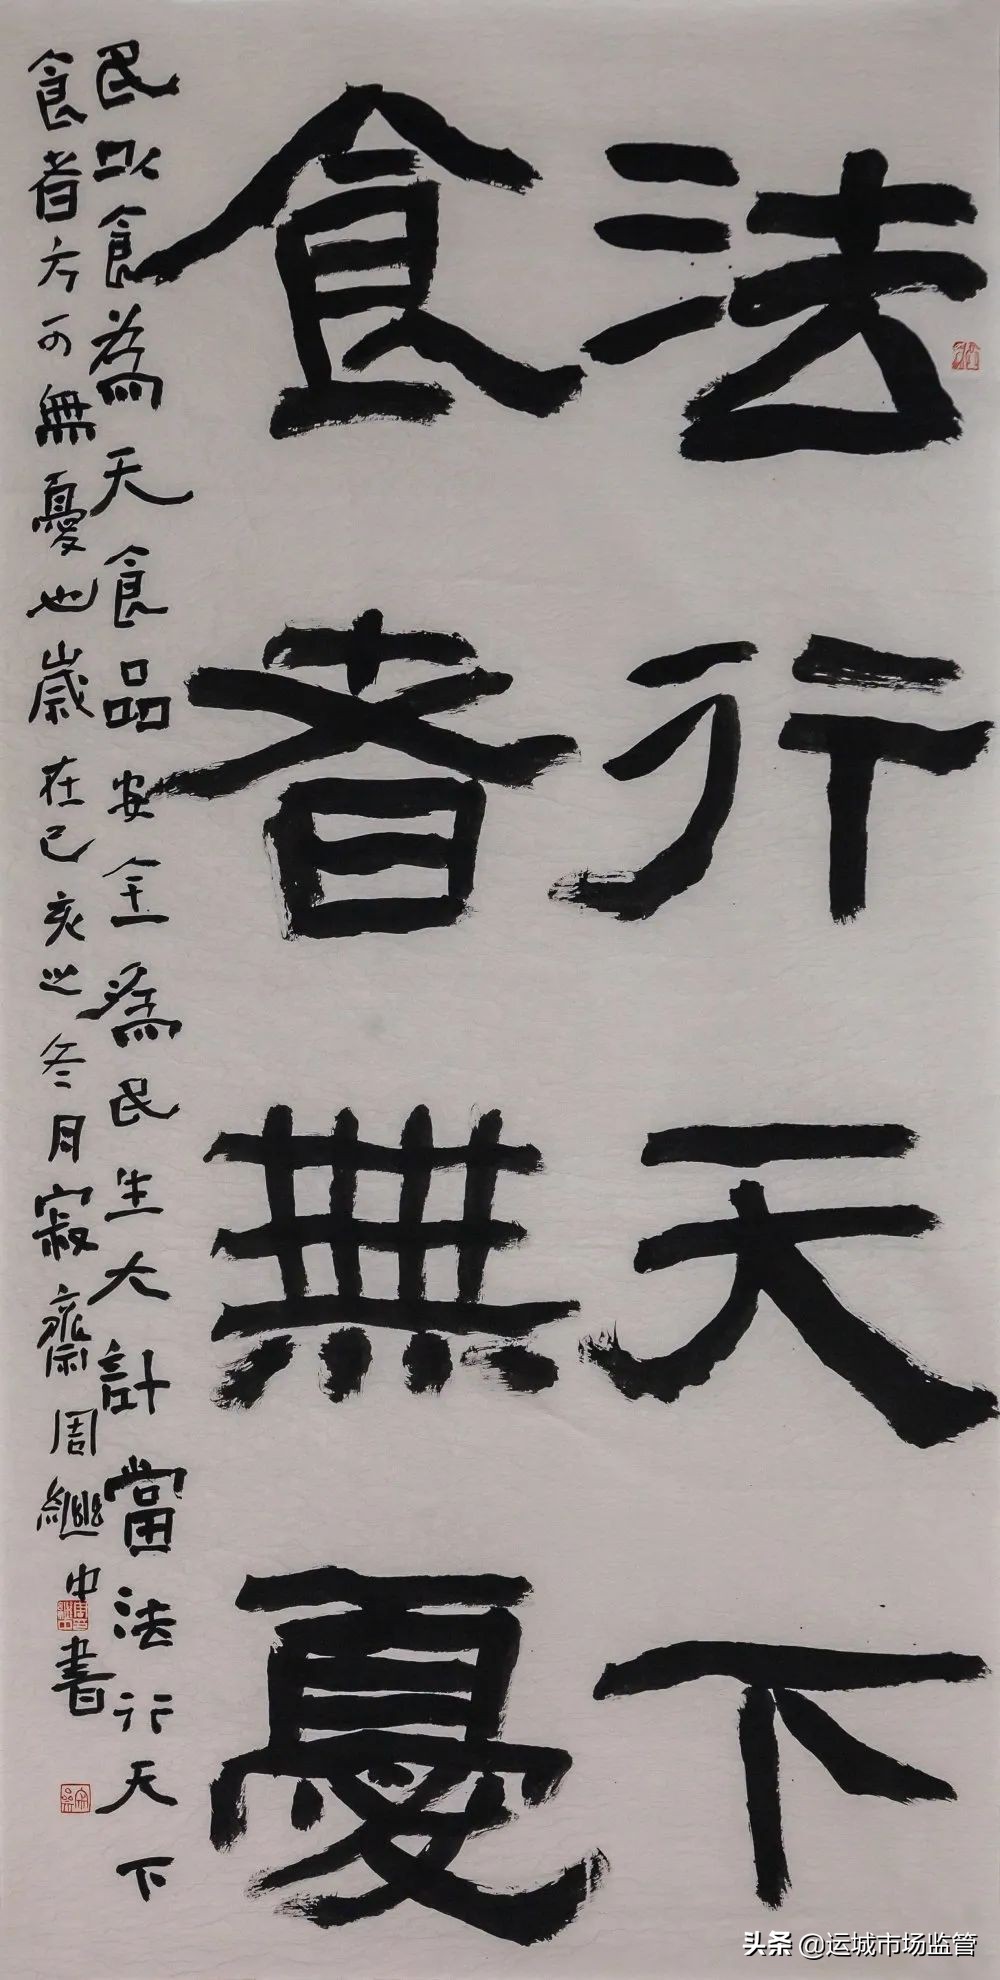 法行天下
食者無憂
民以食為天食品安全為民生大計當法行天下
食者方可無憂也歲在己亥之冬月寂齋周繼中書
头条 @运城市场监管